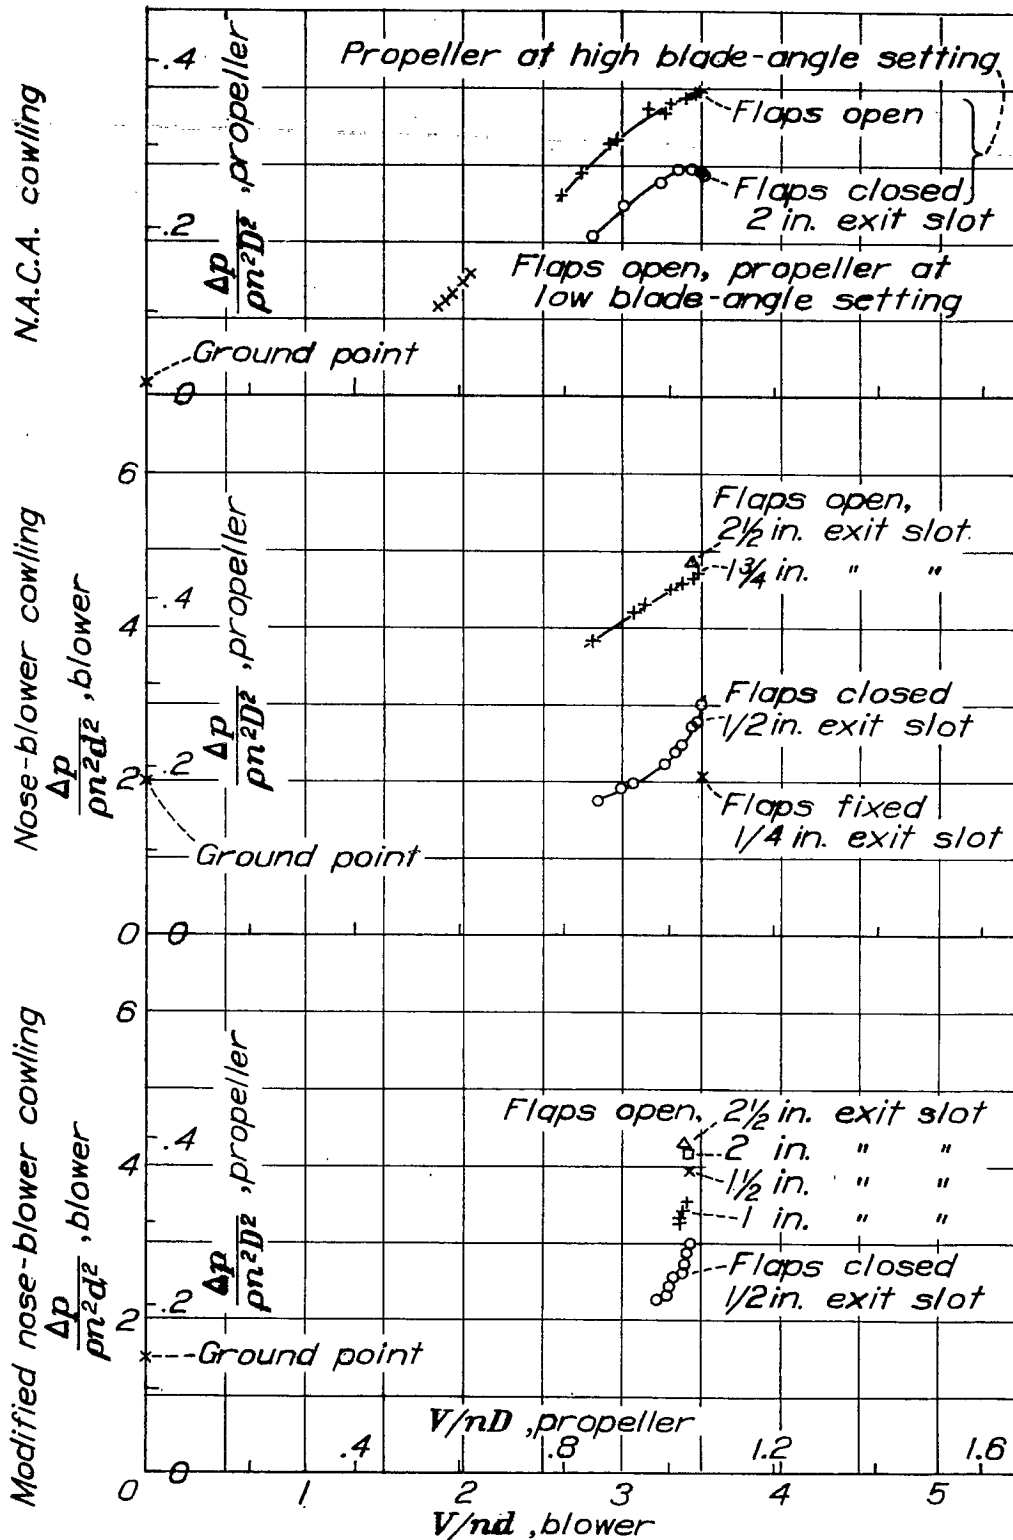 N.A.C.A. cowling
Δp
ρn²D² , propeller
.4
.2
0
Propeller at high blade-angle setting
Flaps open
Flaps closed,
2 in. exit slot
Flaps open, propeller at
low blade-angle setting
Ground point
Nose-blower cowling
Δp
ρn²d² , blower
6
4
2
0
Δp
ρn²D² , propeller
.4
.2
0
Flaps open,
2½ in. exit slot
1¾ in. " "
Flaps closed
1/2 in. exit slot
Flaps fixed
1/4 in. exit slot
Ground point
Modified nose-blower cowling
Δp
ρn²d² , blower
6
4
2
0
Δp
ρn²D² , propeller
.4
.2
0
Flaps open, 2½ in. exit slot
2 in. " "
1½ in. " "
1 in. " "
Flaps closed
1/2 in. exit slot
Ground point
V/nD , propeller
.4 .8 1.2 1.6
1 2 3 4 5
V/nd , blower